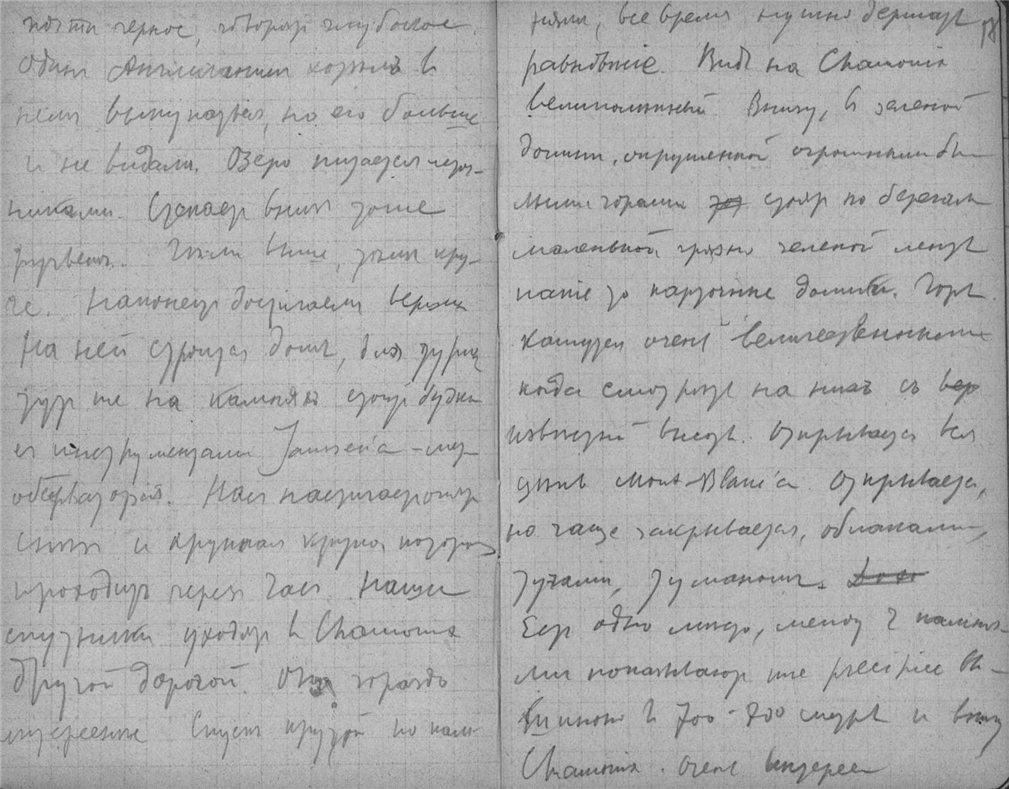 почти черное, говорят глубокое.
Один Англичанин корабль в
нем выкупался, но его больше
и не видали. Озеро питается лед-
никами. Спускаер вниз тоже
Чем выше, тем кру-
че. Наконец достигаем верха
На ней строится дом, для тури
тут же на камнях стоит будка
с инструментами Janssen'а -
обсерватория. Нас настигает
и крупная крупа, которая
проходит через час. Наши
спутники уходят в Chamonix
другой дорогой. Она гораздо
интереснее Спуск крутой по кам-
ням, все время нужно держать
равновесiе. Видъ на Chamonix
великолепный. Внизу, в зеленой
долине, окруженной огромными бе
лыми горами стоят по берегам
маленькой грязно зеленой ленты
какiе то карточные домики. Горы
кажутся очень величественными
когда смотришь на них съ
известной высоты. Открывается вся
цепь Mont-Blanc'а. Открывается,
но чаще закрывается, облаками,
тучами, туманом.
Есть одно место, между 2 камня-
ми показывают мне precipice вы-
шиною в 700-800 метров и внизу
Chamonix. Очень интересен